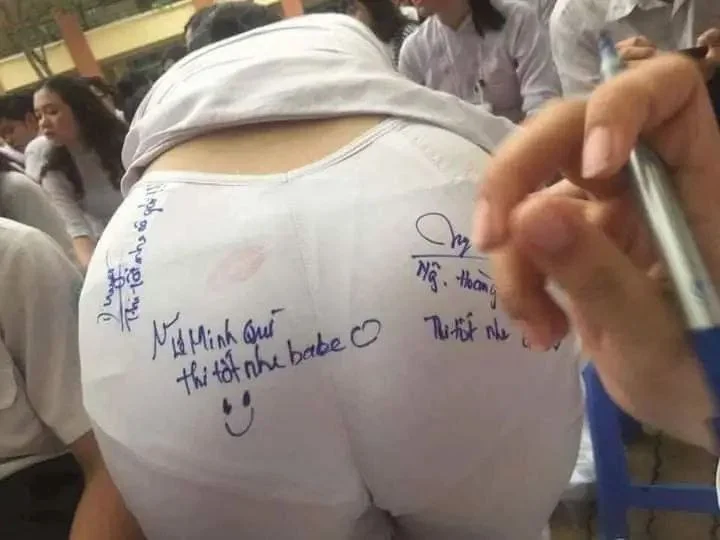 Thi tốt nhé cô gái !!
Minh Quí
thi tốt nhe babe ♡
Ng. Hoàng
Thi tốt nhe